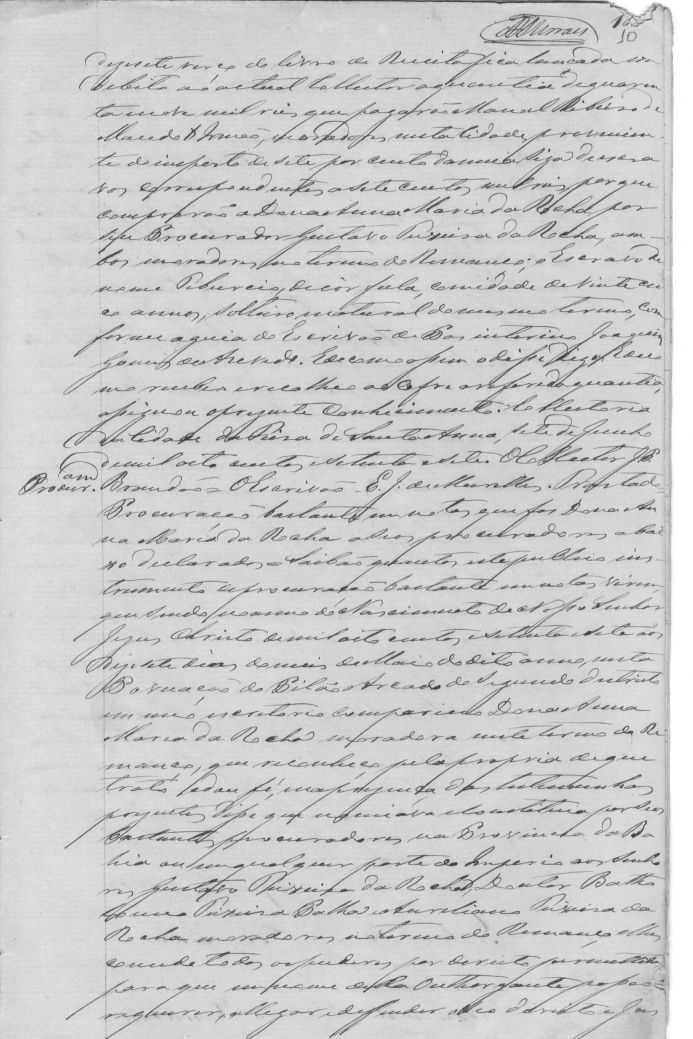 10
desesete verço do livro de Receita fica lançada em
debito ao actual Collector a quantia de quaren
ta nove mil reis que pagarão Manoel Ribeiro de
Macedo & Irmão, moradores nesta Cidade, provenien-
te do imposto de sete por cento da meia siza de escra
vos correspondente a sete centos mil reis porque
comprarão a Dona Anna Maria da Rocha, por
seu Procurador Gustavo Teixeira da Rocha, am-
bos moradores no termo do Remanço, o Escravo de
nome Tiburcio, de côr fula, com idade de vinte cin
co annos, solteiro, natural do mesmo termo, con
forme a guia do Escrivão de Paz interino Joaquim
Gomes de Azevedo. E de como assim o disse, digo, E de co
mo recebeu e recolheu ao Cofre a referida quantia,
assignou o prezente Conhecimento. Collectoria
da Cidade da Feira de Santa Anna, sete de Junho
de mil oito centos e setenta e sete. O Collector J. P.
Procur.am Brandão = O Escrivão E. J. de
Procuração bastante em notas que faz Dona An
na Maria da Rocha a seos procuradores abai
xo declarados = Saibão quantos este publico ins-
trumento de procuração bastante em notas virem
que sendo no anno do Nascimento de Nosso Senhor
Jezus Christo de mil oito centos e setenta e sete aos
desesete dias do mez de Maio do dito anno, nesta
Povoação do Pilão Arcado do Segundo districto
em meo escritorio compareceo Dona Anna
Maria da Rocha moradora neste termo do Re
manço, que reconheço pela propria de que
trato e dou fé, e na prezença das testemunhas
prezentes disse que nomeáva e constituia por seos
bastantes procuradores na Provincia da Ba
hia ou em qualquer parte do Imperio aos Senho
res Gustavo Teixeira da Rocha, Doutor Bartho
lomeo Teixeira Palha e Aureliano Teixeira da
Rocha, moradores no termo do Remanço, a elles
concede todos os puderes por direito permettidos
para que em nome della Outhorgante possão
requerer, allegar, e defender o seo direito e Jus